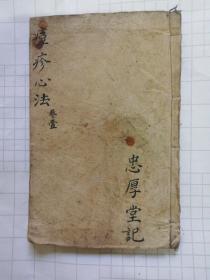 疹心法
卷壹
忠厚堂記